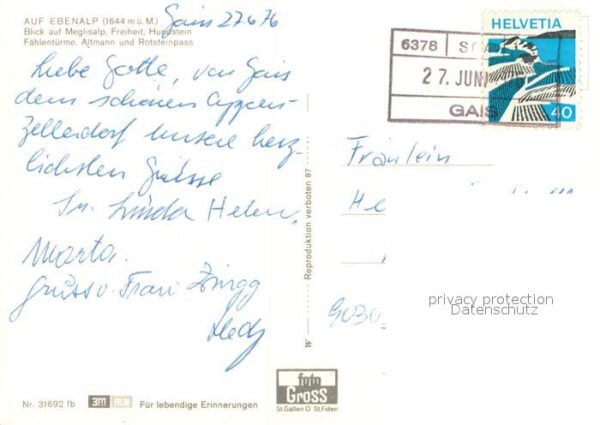 AUF EBENALP (1644 m ü. M.)
Blick auf Meglisalp, Freiheit, Hundstein
Fählentürme, Altmann und Rotsteinpass
Gais 27.6.76
Liebe Gotte, von Gais
dem schönen Appen-
zellerdorf unsere herz-
lichsten Grüsse
Linda Helen,
Marta.
Gruss v. Frau Zingg
Hedy
Nr. 31692 fb
3M FILM
Für lebendige Erinnerungen
Reproduktion verboten 87
foto
GROSS
St.Gallen O St.Fiden
6378
27. JUNI
GAIS
HELVETIA
40
Fräulein
He
9030
privacy protection
Datenschutz